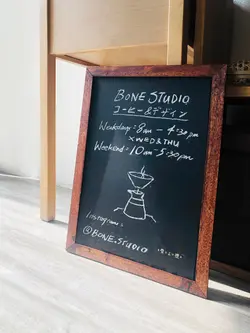 BONE STUDIO
コーヒー&デザイン
Weekdays = 8am - 4:30pm
x WED & THU
Weekend = 10am - 5:30pm
Instagram =
@BONE.STUDIO